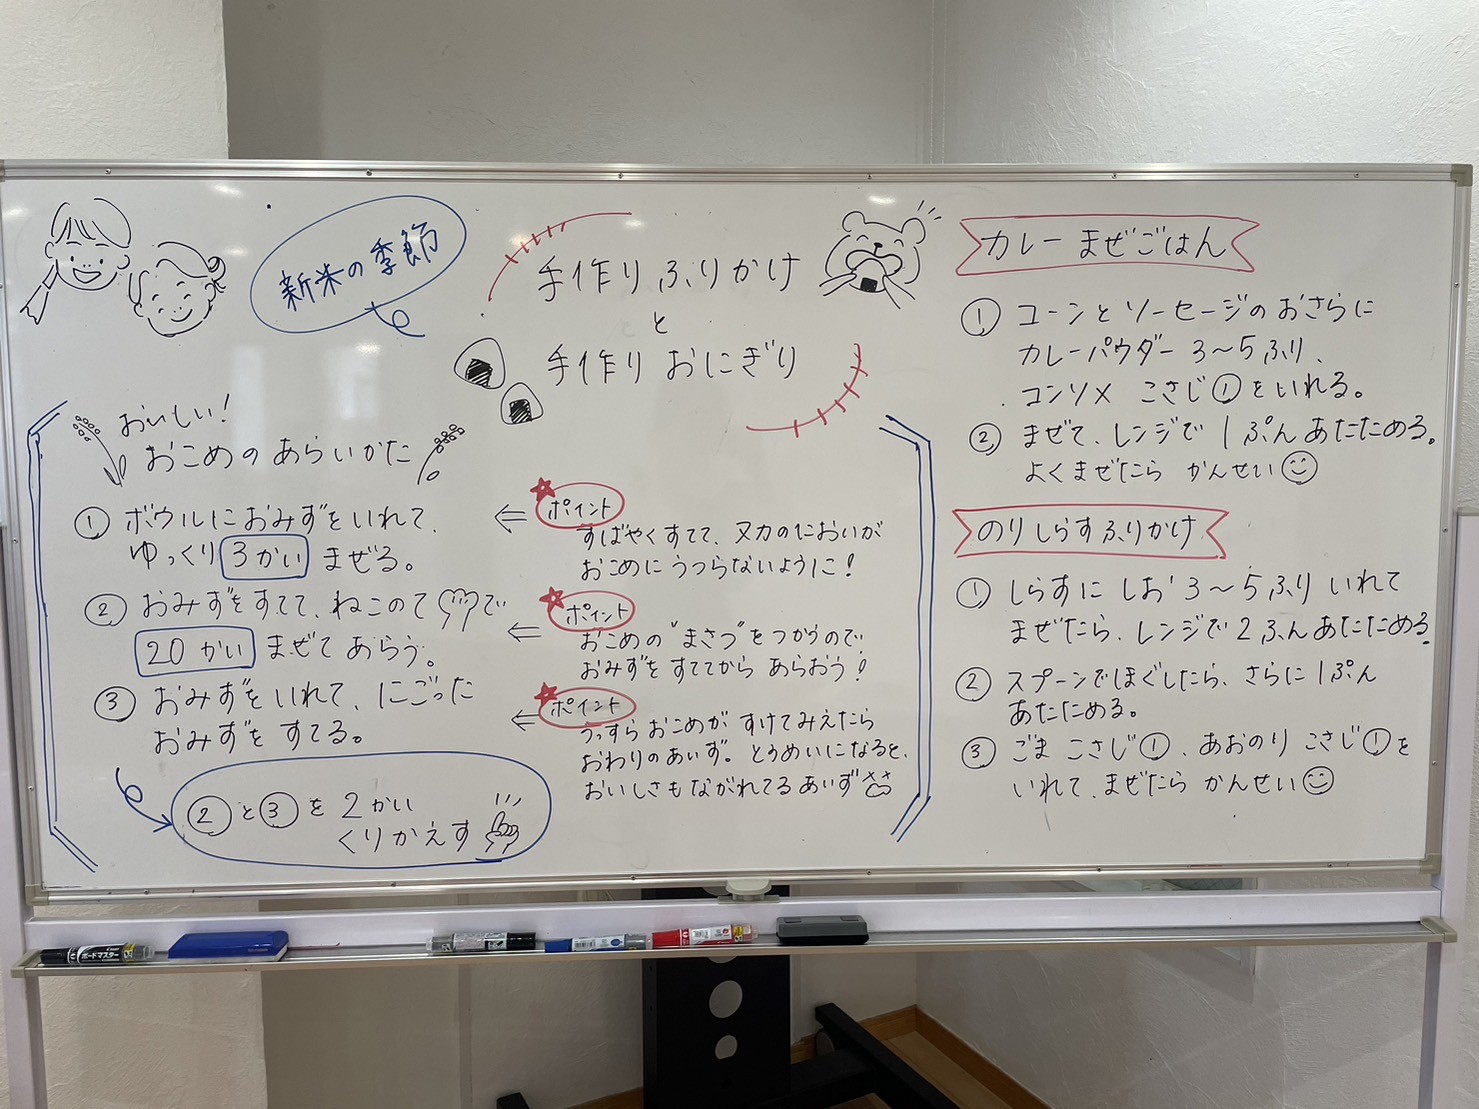 新米の季節
手作りふりかけ
と
手作りおにぎり
おいしい!
おこめのあらいかた
① ボウルにおみずをいれて、
ゆっくり 3かい まぜる。
② おみずをすてて、ねこのてで
20かい まぜてあらう。
③ おみずをいれて、にごった
おみずをすてる。
②と③を2かい
くりかえす
⇐ ポイント
すばやくすてて、ヌカのにおいが
おこめにうつらないように!
⇐ ポイント
おこめの"まさつ"をつかうので、
おみずをすててからあらおう!
⇐ ポイント
うっすらおこめがすけてみえたら
おわりのあいず。とうめいになると、
おいしさもながれてるあいず
カレーまぜごはん
① コーンとソーセージのおさらに
カレーパウダー3〜5ふり、
コンソメ こさじ①をいれる。
② まぜて、レンジで1ぷんあたためる。
よくまぜたら かんせい
のりしらすふりかけ
① しらすに しお 3〜5ふり いれて
まぜたら、レンジで2ふんあたためる。
② スプーンでほぐしたら、さらに1ぷん
あたためる。
③ ごま こさじ①、あおのり こさじ①を
いれて、まぜたら かんせい
ボードマスター